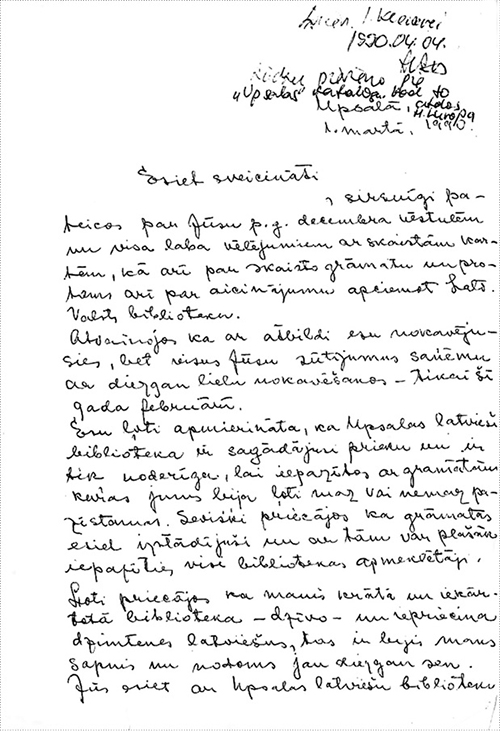 1990.04.04.
Upsalā,
1. martā.
Esiet sveicināti
, sirsnīgi pa-
teicos par Jūsu p.g. decembra vēstulēm
un visa laba vēlējumiem ar skaistām kar-
tēm, kā arī par skaisto grāmatu un pro-
tams arī par aicinājumu apciemot Lats.
Valsts biblioteku.
Atvainojos ka ar atbildi esu nokavēju-
sies, bet visus Jūsu sūtījumus saņēmu
ar diezgan lielu nokavēšanos – tikai šī
gada februārī.
Esu ļoti apmierināta, ka Upsalas latviešu
biblioteka ir sagādājusi prieku un ir
tik noderīga, lai iepazītos ar grāmatām
kuŗas jums bija ļoti maz vai nemaz pa-
zīstamas. Sevišķi priecājos ka grāmatas
esiet izstādījuši un ar tām var plašāk
iepazīties visi bibliotekas apmeklētāji.
Ļoti priecājos ka manis krātā un iekār-
totā biblioteka – dzīvo – un iepriecina
dzimtenes latviešus, tas ir bijis mans
sapnis un nodoms jau diezgan sen.
Jūs esiet ar Upsalas latviešu biblioteku